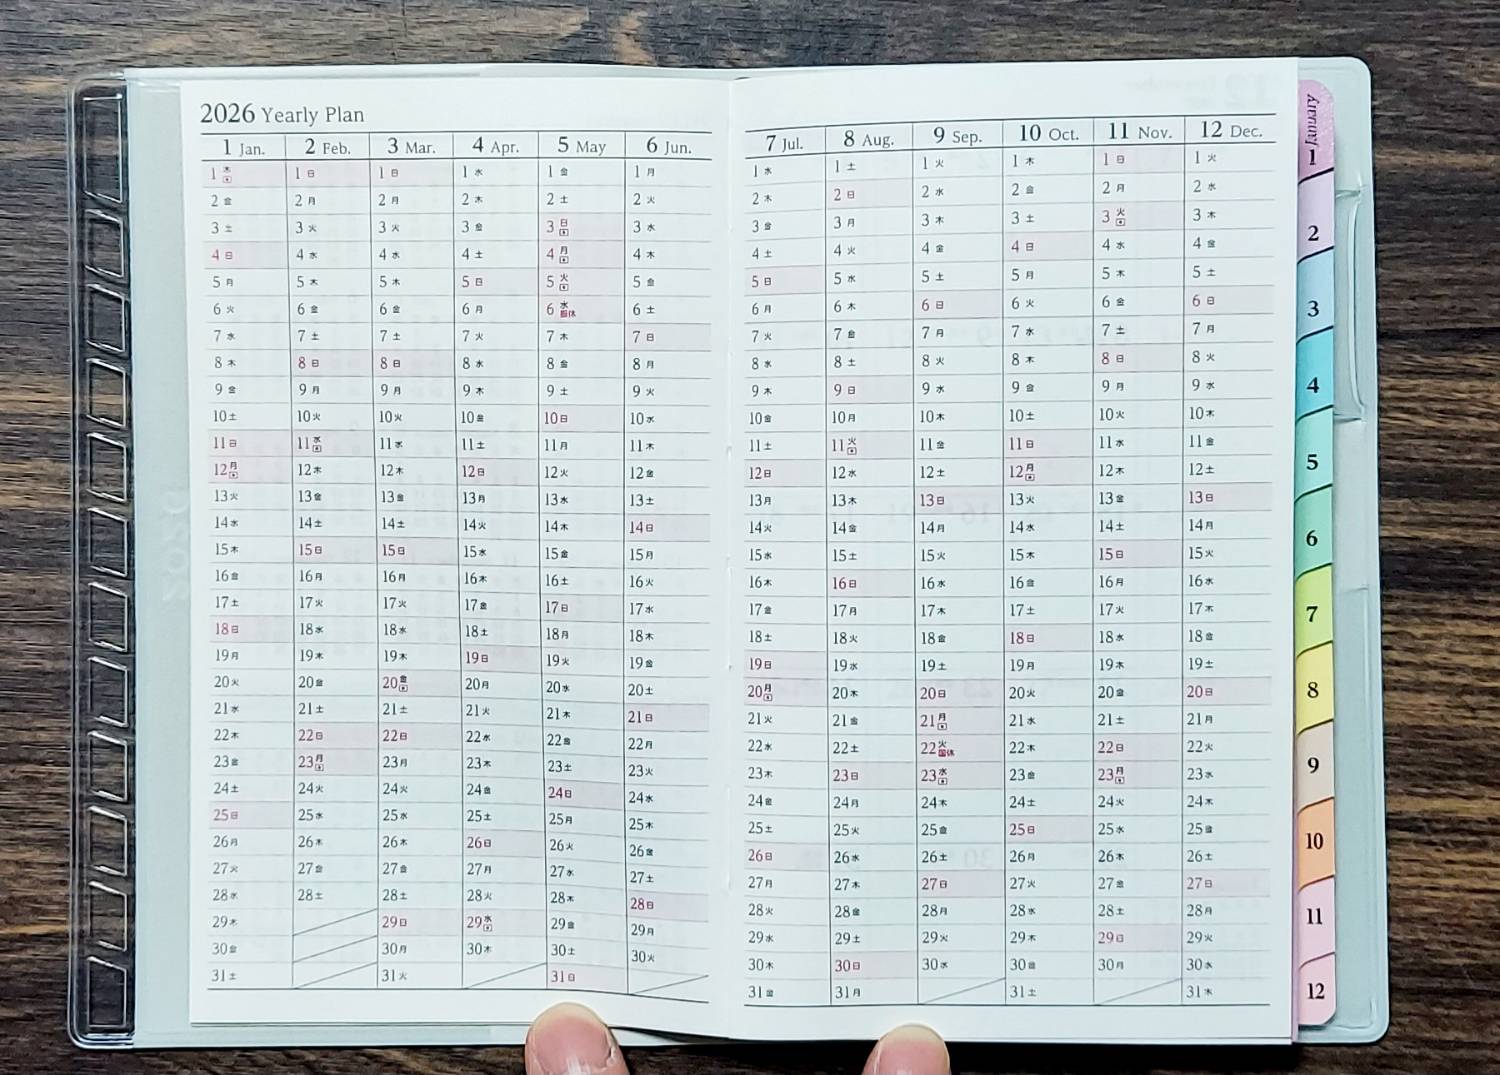 2026 Yearly Plan
1 Jan. 2 Feb. 3 Mar. 4 Apr. 5 May 6 Jun.
1 木 1 日 1 日 1 水 1 金 1 月
2 金 2 月 2 月 2 木 2 土 2 火
3 土 3 火 3 火 3 金 3 日 3 水
4 日 4 水 4 水 4 土 4 月 4 木
5 月 5 木 5 木 5 日 5 火 5 金
6 火 6 金 6 金 6 月 6 水 振休 6 土
7 水 7 土 7 土 7 火 7 木 7 日
8 木 8 日 8 日 8 水 8 金 8 月
9 金 9 月 9 月 9 木 9 土 9 火
10 土 10 火 10 火 10 金 10 日 10 水
11 日 11 水 11 水 11 土 11 月 11 木
12 月 12 木 12 木 12 日 12 火 12 金
13 火 13 金 13 金 13 月 13 水 13 土
14 水 14 土 14 土 14 火 14 木 14 日
15 木 15 日 15 日 15 水 15 金 15 月
16 金 16 月 16 月 16 木 16 土 16 火
17 土 17 火 17 火 17 金 17 日 17 水
18 日 18 水 18 水 18 土 18 月 18 木
19 月 19 木 19 木 19 日 19 火 19 金
20 火 20 金 20 金 20 月 20 水 20 土
21 水 21 土 21 土 21 火 21 木 21 日
22 木 22 日 22 日 22 水 22 金 22 月
23 金 23 月 23 月 23 木 23 土 23 火
24 土 24 火 24 火 24 金 24 日 24 水
25 日 25 水 25 水 25 土 25 月 25 木
26 月 26 木 26 木 26 日 26 火 26 金
27 火 27 金 27 金 27 月 27 水 27 土
28 水 28 土 28 土 28 火 28 木 28 日
29 木 29 日 29 水 29 金 29 月
30 金 30 月 30 木 30 土 30 火
31 土 31 火 31 日
7 Jul. 8 Aug. 9 Sep. 10 Oct. 11 Nov. 12 Dec.
1 水 1 土 1 火 1 木 1 日 1 火
2 木 2 日 2 水 2 金 2 月 2 水
3 金 3 月 3 木 3 土 3 火 3 木
4 土 4 火 4 金 4 日 4 水 4 金
5 日 5 水 5 土 5 月 5 木 5 土
6 月 6 木 6 日 6 火 6 金 6 日
7 火 7 金 7 月 7 水 7 土 7 月
8 水 8 土 8 火 8 木 8 日 8 火
9 木 9 日 9 水 9 金 9 月 9 水
10 金 10 月 10 木 10 土 10 火 10 木
11 土 11 火 11 金 11 日 11 水 11 金
12 日 12 水 12 土 12 月 12 木 12 土
13 月 13 木 13 日 13 火 13 金 13 日
14 火 14 金 14 月 14 水 14 土 14 月
15 水 15 土 15 火 15 木 15 日 15 火
16 木 16 日 16 水 16 金 16 月 16 水
17 金 17 月 17 木 17 土 17 火 17 木
18 土 18 火 18 金 18 日 18 水 18 金
19 日 19 水 19 土 19 月 19 木 19 土
20 月 20 木 20 日 20 火 20 金 20 日
21 火 21 金 21 月 21 水 21 土 21 月
22 水 22 土 22 火 国休 22 木 22 日 22 火
23 木 23 日 23 水 23 金 23 月 23 水
24 金 24 月 24 木 24 土 24 火 24 木
25 土 25 火 25 金 25 日 25 水 25 金
26 日 26 水 26 土 26 月 26 木 26 土
27 月 27 木 27 日 27 火 27 金 27 日
28 火 28 金 28 月 28 水 28 土 28 月
29 水 29 土 29 火 29 木 29 日 29 火
30 木 30 日 30 水 30 金 30 月 30 水
31 金 31 月 31 土 31 木
January
1
2
3
4
5
6
7
8
9
10
11
12